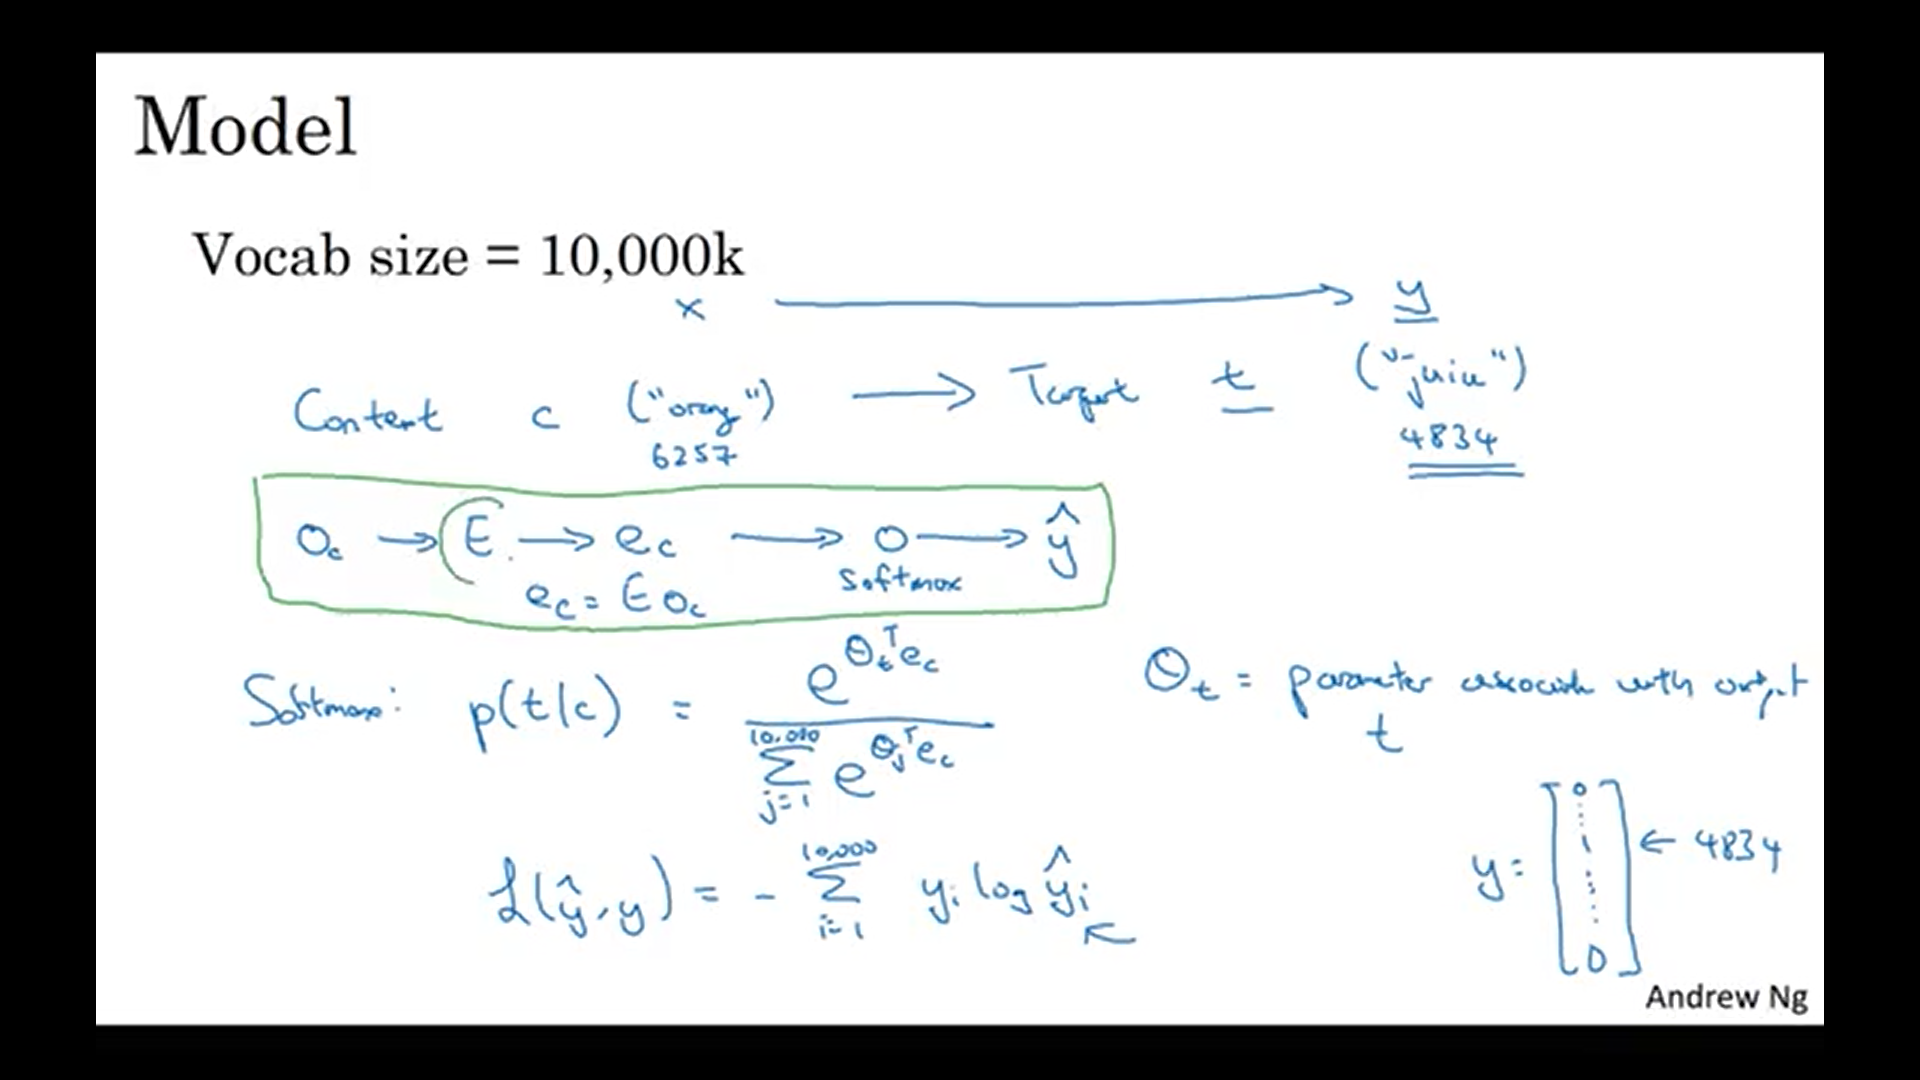 Model
Vocab size = 10,000k
x → y
Content c ("orange") → Target t ("juice")
6257 4834
Oc → E → ec → o → ŷ
softmax
ec = E Oc
Softmax: p(t|c) = e^(θt^T ec) / Σ_(j=1)^(10,000) e^(θj^T ec)
θt = parameter associate with output t
L(ŷ, y) = - Σ_(i=1)^(10,000) yi log ŷi
y = [0 ⋮ 1 ⋮ 0] ← 4834
Andrew Ng